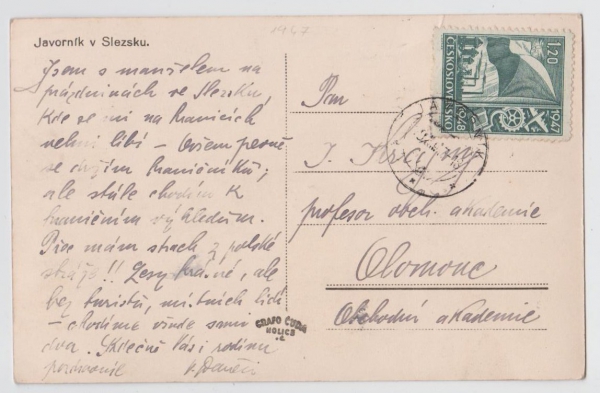 1947
Javorník v Slezsku.
Jsem s manželem na
prázdninách ve Slezsku,
kde se mi na hranicích
velmi líbí – Ovšem pevně
se držím hraničníků;
ale stále chodím k
hraničním výhledům.
Více mám strach z polské
stráže!! Lesy krásné, ale
bez turistů, místních lidí
– chodíme všude sami
dva. Srdečně Vás i rodinu
pozdravuje
Pan
J.
profesor obch. akademie
Olomouc
Obchodní akademie
ČESKOSLOVENSKO
1.20
1947
1948
JAVORNÍK
GRAFO ČUDA
HOLICE